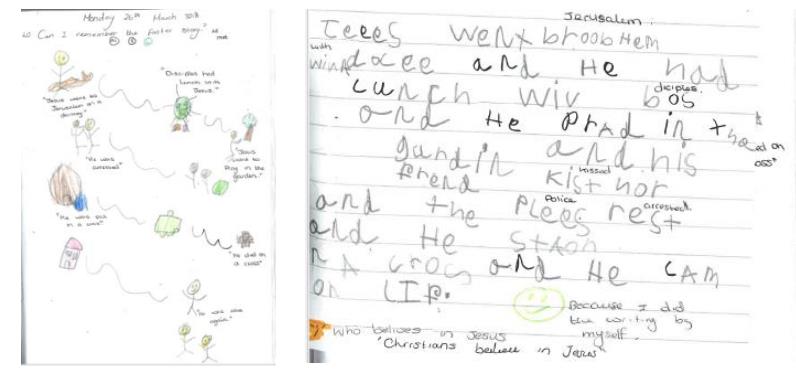 Monday 26th March 2018
LO Can I remember the Easter story?
"Jesus went to
Jerusalem on a
donkey."
"Disciples had
lunch with
Jesus."
"Jesus
went to
Pray in the
garden."
"He was
arrested"
"He was put
in a cave"
"He died on
a cross"
"He was alive
again."
Jerusalem.
Teees went broobHem
with
winA docee and He had
diciples.
Lunch wiv bos
and He Prad in the
gardin and his
kissed
frend Kist hor
Police arrested.
and the Plees rest
and He
A cros and He cAM
on LIF.
Because I did
the writing by
myself.
Who believes in Jesus
"Christians believe in Jesus"